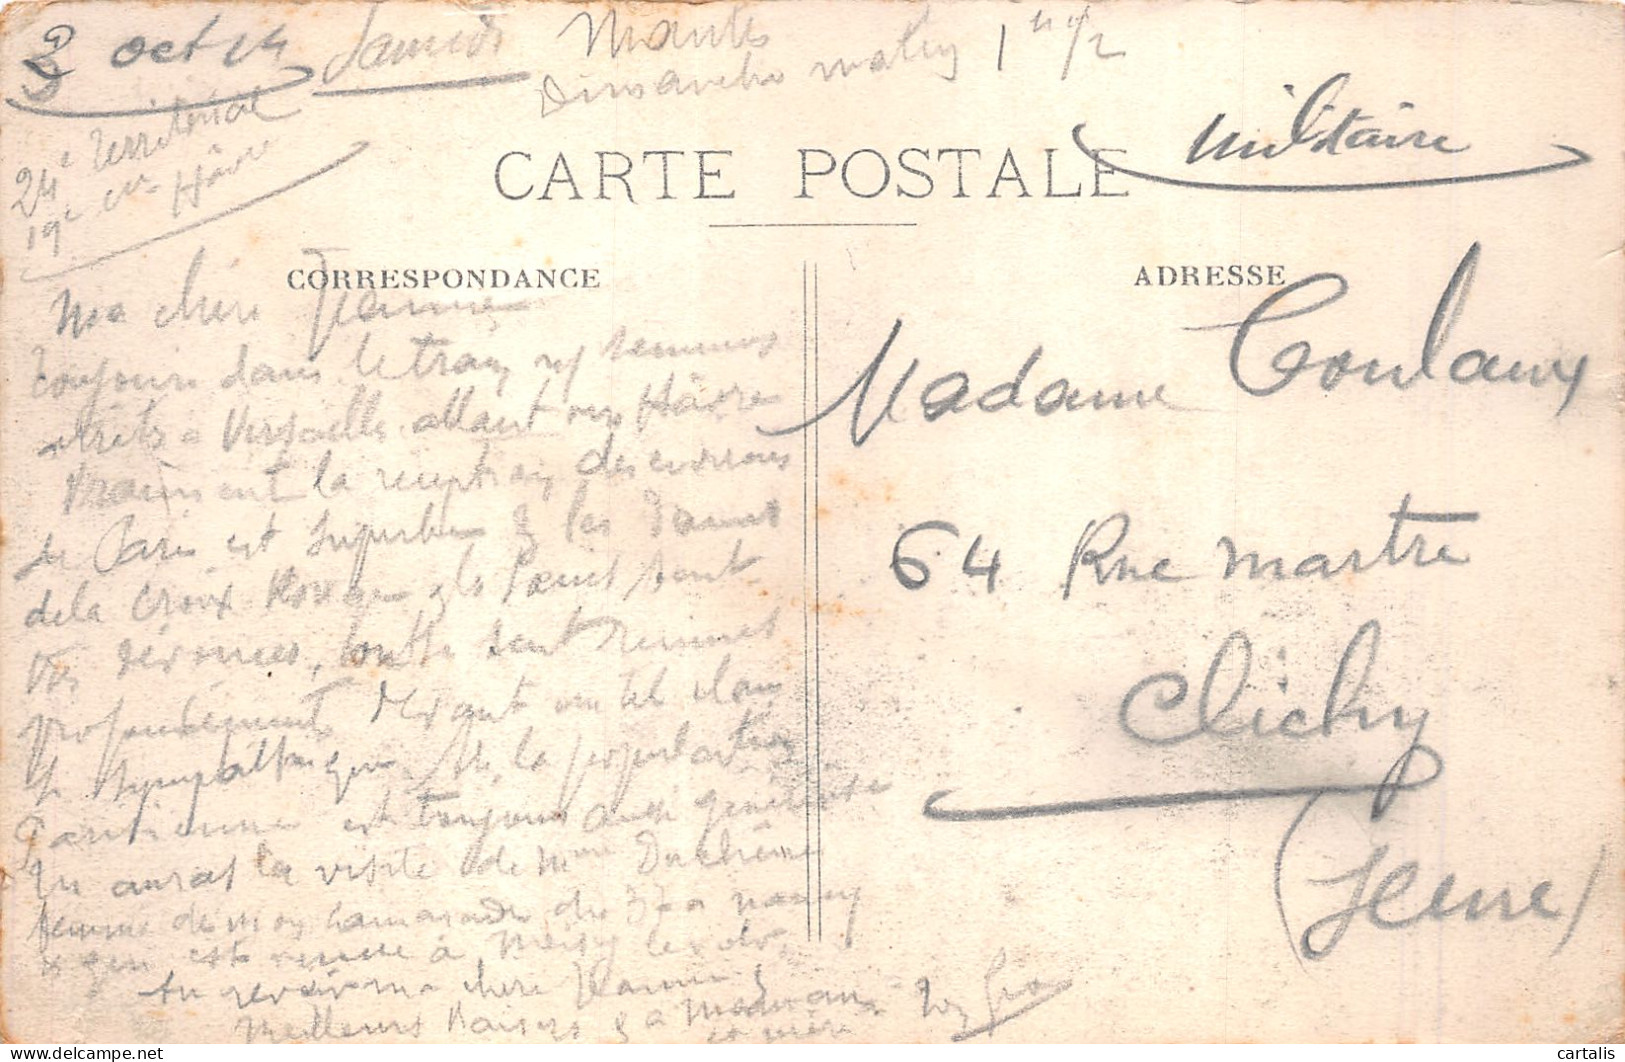 3 oct 14 Samedi Mantes
Dimanche matin 1 h 1/2
24e Territorial
19e Cie Hâvre
militaire
CARTE POSTALE
CORRESPONDANCE
ADRESSE
Ma chère Jeanne
Toujours dans le train ns sommes
à Versailles allant au Hâvre
Vraiment la réception des environs
de Paris est superbe & les Dames
de la Croix Rouge sont
dévouées, toute sont
profondément devant un tel élan
& sympathique la population
Parisienne est toujours aussi généreuse
Tu auras la visite de Mme Duchêne
femme de mon camarade du 370 a Nancy
& qui est venue à
Au revoir ma chère Jeanne &
Meilleurs Baisers & a Maman
et mère
Ton
Madame Coulaux
64 Rue Martre
Clichy
(Seine)
cartalis
delcampe.net